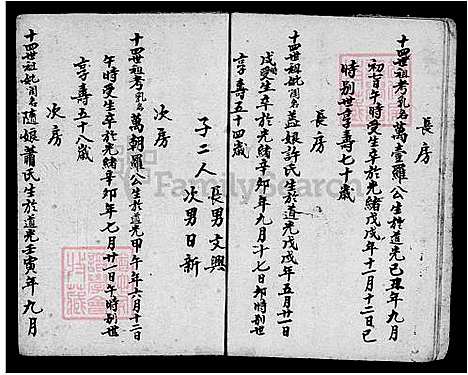 長房
十四世祖考乳名萬壹羅公生於道光己丑年九月
初旨午時受生卒於光緒戊戌年十一月十二日巳
時別世享壽七十歲
長房
十四世祖妣閨名益娘許氏生於道光戊戌年五月廿一日
戌受生卒於光緒辛卯年九月十七日卯時別世
享壽五十四歲
子二人 長男文興
次男日新
次房
十四世祖考乳名萬朝羅公生於道光甲午年六月十二日
午時受生卒於光緒辛卯年七月廿一日午時別世
享壽五十八歲
次房
十四世祖妣閨名随娘蕭氏生於道光壬寅年九月
FamilySearch